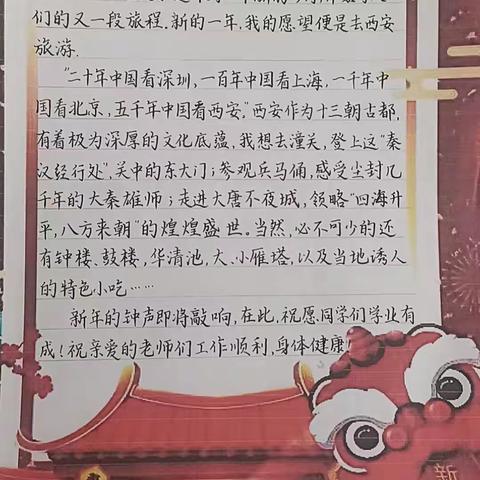 们的又一段旅程.新的一年,我的愿望便是去西安
旅游.
"二十年中国看深圳,一百年中国看上海,一千年中
国看北京,五千年中国看西安."西安作为十三朝古都,
有着极为深厚的文化底蕴,我想去潼关,登上这"秦
汉经行处",关中的东大门;参观兵马俑,感受尘封几
千年的大秦雄师;走进大唐不夜城,领略"四海升
平,八方来朝"的煌煌盛世.当然,必不可少的还
有钟楼、鼓楼,华清池,大、小雁塔,以及当地诱人
的特色小吃……
新年的钟声即将敲响,在此,祝愿同学们学业有
成!祝亲爱的老师们工作顺利,身体健康!
新